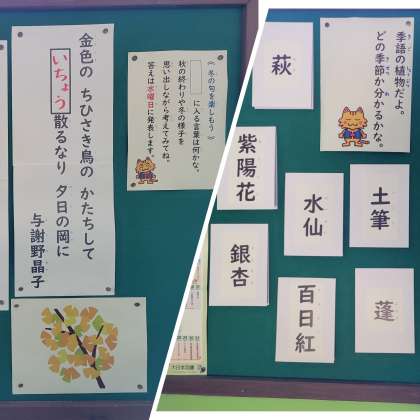 金色の ちひさき鳥の かたちして
いちょう
散るなり 夕日の岡に
与謝野晶子
《冬の句を楽しもう》
に入る言葉は何かな。
秋の終わりや冬の様子を
思い出しながら考えてみてね。
答えは水曜日に発表します。
季語の植物だよ。
どの季節か分かるかな。
萩
紫陽花
水仙
土筆
銀杏
百日紅
蓬
大日本図書